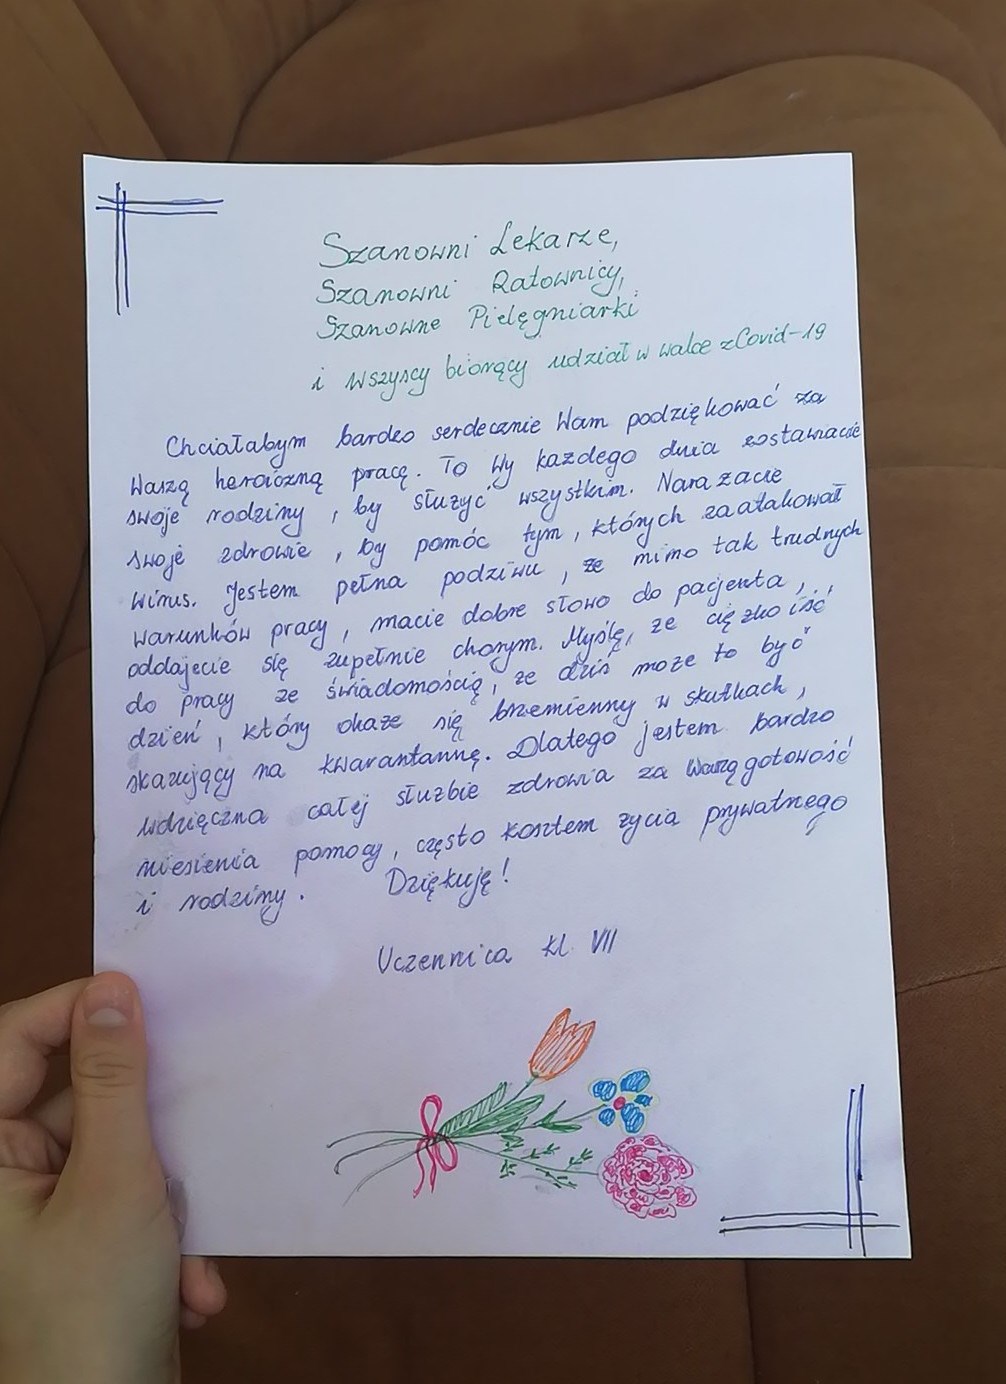 Szanowni Lekarze,
Szanowni Ratownicy,
Szanowne Pielęgniarki
i wszyscy biorący udział w walce z Covid-19
Chciałabym bardzo serdecznie Wam podziękować za
Waszą heroiczną pracę. To Wy każdego dnia zostawiacie
swoje rodziny, by służyć wszystkim. Narażacie
swoje zdrowie, by pomóc tym, których zaatakował
wirus. Jestem pełna podziwu, że mimo tak trudnych
warunków pracy, macie dobre słowo do pacjenta,
oddajecie się zupełnie chorym. Myślę, że ciężko iść
do pracy ze świadomością, że dziś może to być
dzień, który okaże się brzemienny w skutkach,
skazujący na kwarantannę. Dlatego jestem bardzo
wdzięczna całej służbie zdrowia za Waszą gotowość
niesienia pomocy, często kosztem życia prywatnego
i rodziny. Dziękuję!
Uczennica kl. VII